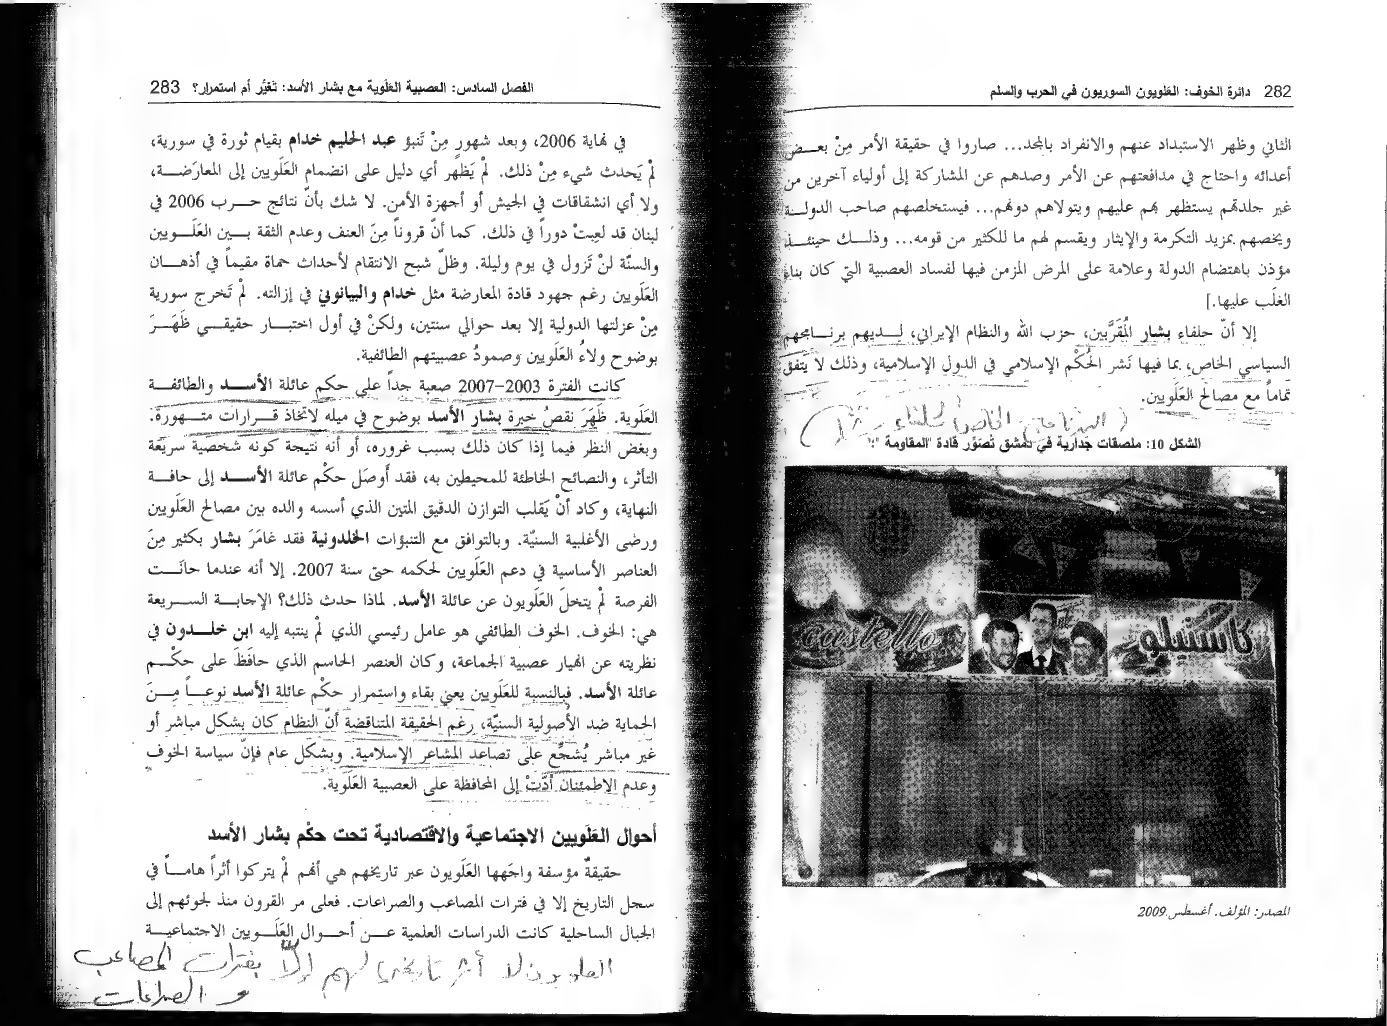 282 دائرة الخوف: العَلَويون السوريون في الحرب والسلم
الثاني وظهر الاستبداد عنهم والانفراد بالمجد... صاروا في حقيقة الأمر مِنْ بعـــض
أعدائه واحتاج في مدافعتهم عن الأمر وصدهم عن المشاركة إلى أولياء آخرين من
غير جلدتهم يستظهر بهم عليهم ويتولاهم دونهم... فيستخلصهم صاحب الدولـــة
ويخصهم بمزيد التكرمة والإيثار ويقسم لهم ما للكثير من قومه... وذلـــك حينئـــذ
مؤذن باهتضام الدولة وعلامة على المرض المزمن فيها لفساد العصبية التي كان بناء
الغلَب عليها.]
إلا أنّ حلفاء بشار المُقَرَّبين، حزب الله والنظام الإيراني، لـــديهم برنـــامجهم
السياسي الخاص، بما فيها نَشر الحُكْم الإسلامي في الدول الإسلامية، وذلك لا يَتفق
تماماً مع مصالح العَلَويين.
الشكل 10: ملصقات جدارية في دمشق تُصَوِّر قادة "المقاومة"
castello
كاستيلو
المصدر: المؤلف. أغسطس 2009
الفصل السادس: العصبية العَلَوية مع بشار الأسد: تَغيُّر أم استمرار؟ 283
في نهاية 2006، وبعد شهورٍ مِنْ تَنبؤ عبد الحليم خدام بقيام ثورة في سورية،
لمْ يَحدث شيء مِنْ ذلك. لمْ يَظهر أي دليل على انضمام العَلَويين إلى المعارَضـــة،
ولا أي انشقاقات في الجيش أو أجهزة الأمن. لا شك بأنّ نتائج حـــرب 2006 في
لبنان قد لعِبتْ دوراً في ذلك. كما أنّ قروناً مِنَ العنف وعدم الثقة بـــين العَلَـــويين
والسنّة لنْ تَزول في يوم وليلة. وظلّ شبح الانتقام لأحداث حماة مقيماً في أذهـــان
العَلَويين رغم جهود قادة المعارضة مثل خدام والبيانوني في إزالته. لمْ تَخرج سورية
مِنْ عزلتها الدولية إلا بعد حوالي سنتين، ولكنْ في أول اختبـــار حقيقـــي ظَهَـــرَ
بوضوح ولاءُ العَلَويين وصمودُ عصبيتهم الطائفية.
كانت الفترة 2003–2007 صعبة جداً على حكم عائلة الأســـد والطائفـــة
العَلَوية. ظَهَرَ نقصُ خبرة بشار الأسد بوضوح في ميله لاتخاذ قـــرارات متـــهورة.
وبغض النظر فيما إذا كان ذلك بسبب غروره، أو أنه نتيجة كونه شخصية سريعة
التأثر، والنصائح الخاطئة للمحيطين به، فقد أوصَل حكْم عائلة الأســـد إلى حافـــة
النهاية، وكاد أنْ يَقلب التوازن الدقيق المتين الذي أسسه والده بين مصالح العَلَويين
ورضى الأغلبية السنيّة. وبالتوافق مع التنبؤات الخلدونية فقد غامَرَ بشار بكثير مِنَ
العناصر الأساسية في دعم العَلَويين لحكمه حتى سنة 2007. إلا أنه عندما حانَـــت
الفرصة لمْ يتخلَ العَلَويون عن عائلة الأسد. لماذا حدث ذلك؟ الإجابـــة الســـريعة
هي: الخوف. الخوف الطائفي هو عامل رئيسي الذي لمْ ينتبه إليه ابن خلـــدون في
نظريته عن انهيار عصبية الجماعة، وكان العنصر الحاسم الذي حافَظَ على حكْـــم
عائلة الأسد. فبالنسبة للعَلَويين يعني بقاء واستمرار حكْم عائلة الأسد نوعـــاً مِـــنَ
الحماية ضد الأُصولية السنيّة، رغم الحقيقة المتناقضة أنّ النظام كان بشكل مباشر أو
غير مباشر يُشجِّع على تصاعد المشاعر الإسلامية. وبشكل عام فإنّ سياسة الخوف
وعدم الاطمئنان أدّتْ إلى المحافظة على العصبية العَلَوية.
أحوال العَلَويين الاجتماعية والاقتصادية تحت حكْم بشار الأسد
حقيقةٌ مؤسفة واجَهها العَلَويون عبر تاريخهم هي أنهم لمْ يتركوا أثراً هامـــاً في
سجل التاريخ إلا في فترات المصاعب والصراعات. فعلى مر القرون منذ لجوئهم إلى
الجبال الساحلية كانت الدراسات العلمية عـــن أحـــوال العَلَـــويين الاجتماعيـــة
العلويون لا أثر تاريخيا لهم إلّا بفترات المصاعب
و الصراعات